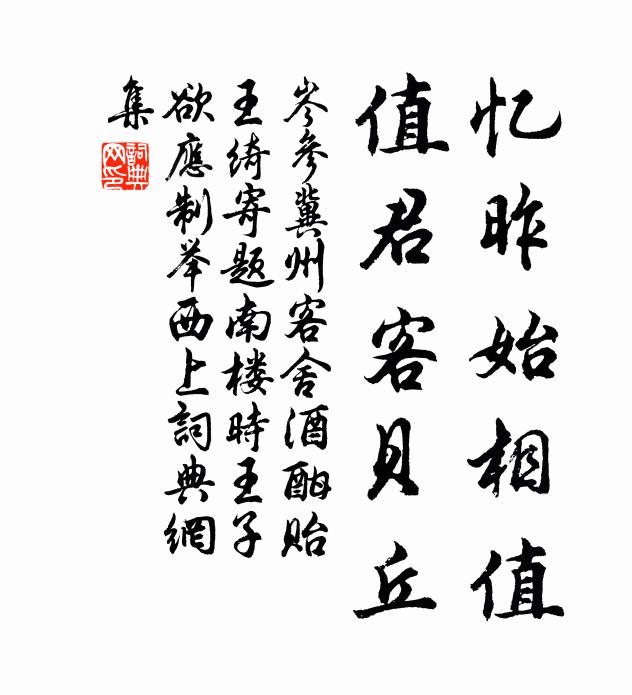 忆昨始相值
值君客贝丘
岑參冀州客舍酒酣貽
王绮寄题南楼時王子
欲應制举西上詞典網
集
詞典
网印